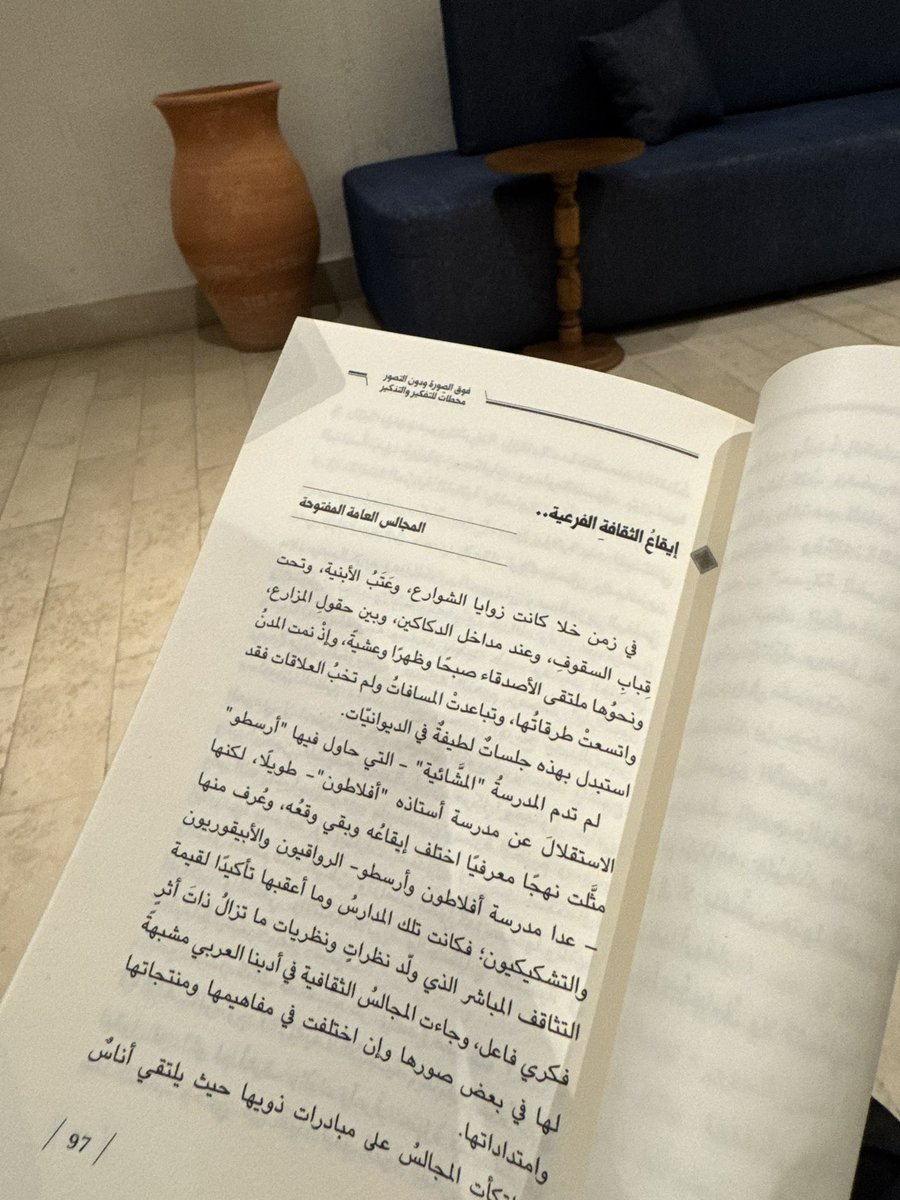 فوق الصّورة ودون التصور
محطاتٌ للتفكير والتنكير
إيقاعُ الثقافةِ الفرعية..
المجالس العامة المفتوحة
في زمن خلا كانت زوايا الشوارع، وعَتَبُ الأبنية، وتحت
قبابِ السقوفِ، وعند مداخل الدكاكين، وبين حقولِ المزارع،
ونحوُها ملتقى الأصدقاء صبحًا وظهرًا وعشيةً، وإذْ نمت المدنُ
واتسعتْ طرقاتُها، وتباعدتْ المسافاتُ ولم تخبُ العلاقات فقد
استبدل بهذه جلساتٌ لطيفةٌ في الديوانيّات.
لم تدم المدرسةُ "المشَّائية" – التي حاول فيها "أرسطو"
الاستقلالَ عن مدرسة أستاذه "أفلاطون"– طويلًا، لكنها
مثَّلت نهجًا معرفيًا اختلف إيقاعُه وبقي وقعُه، وعُرف منها
– عدا مدرسة أفلاطون وأرسطو– الرواقيون والأبيقوريون
والتشكيكيون؛ فكانت تلك المدارسُ وما أعقبها تأكيدًا لقيمة
التثاقف المباشر الذي ولّد نظراتٍ ونظريات ما تزالُ ذاتَ أثرٍ
فكري فاعل، وجاءت المجالسُ الثقافية في أدبنا العربي مشبهةً
لها في بعض صورها وإن اختلفت في مفاهيمها ومنتجاتها
وامتداداتها.
المجالسُ على مبادرات ذويها حيث يلتقي أناسٌ
/ 97 /